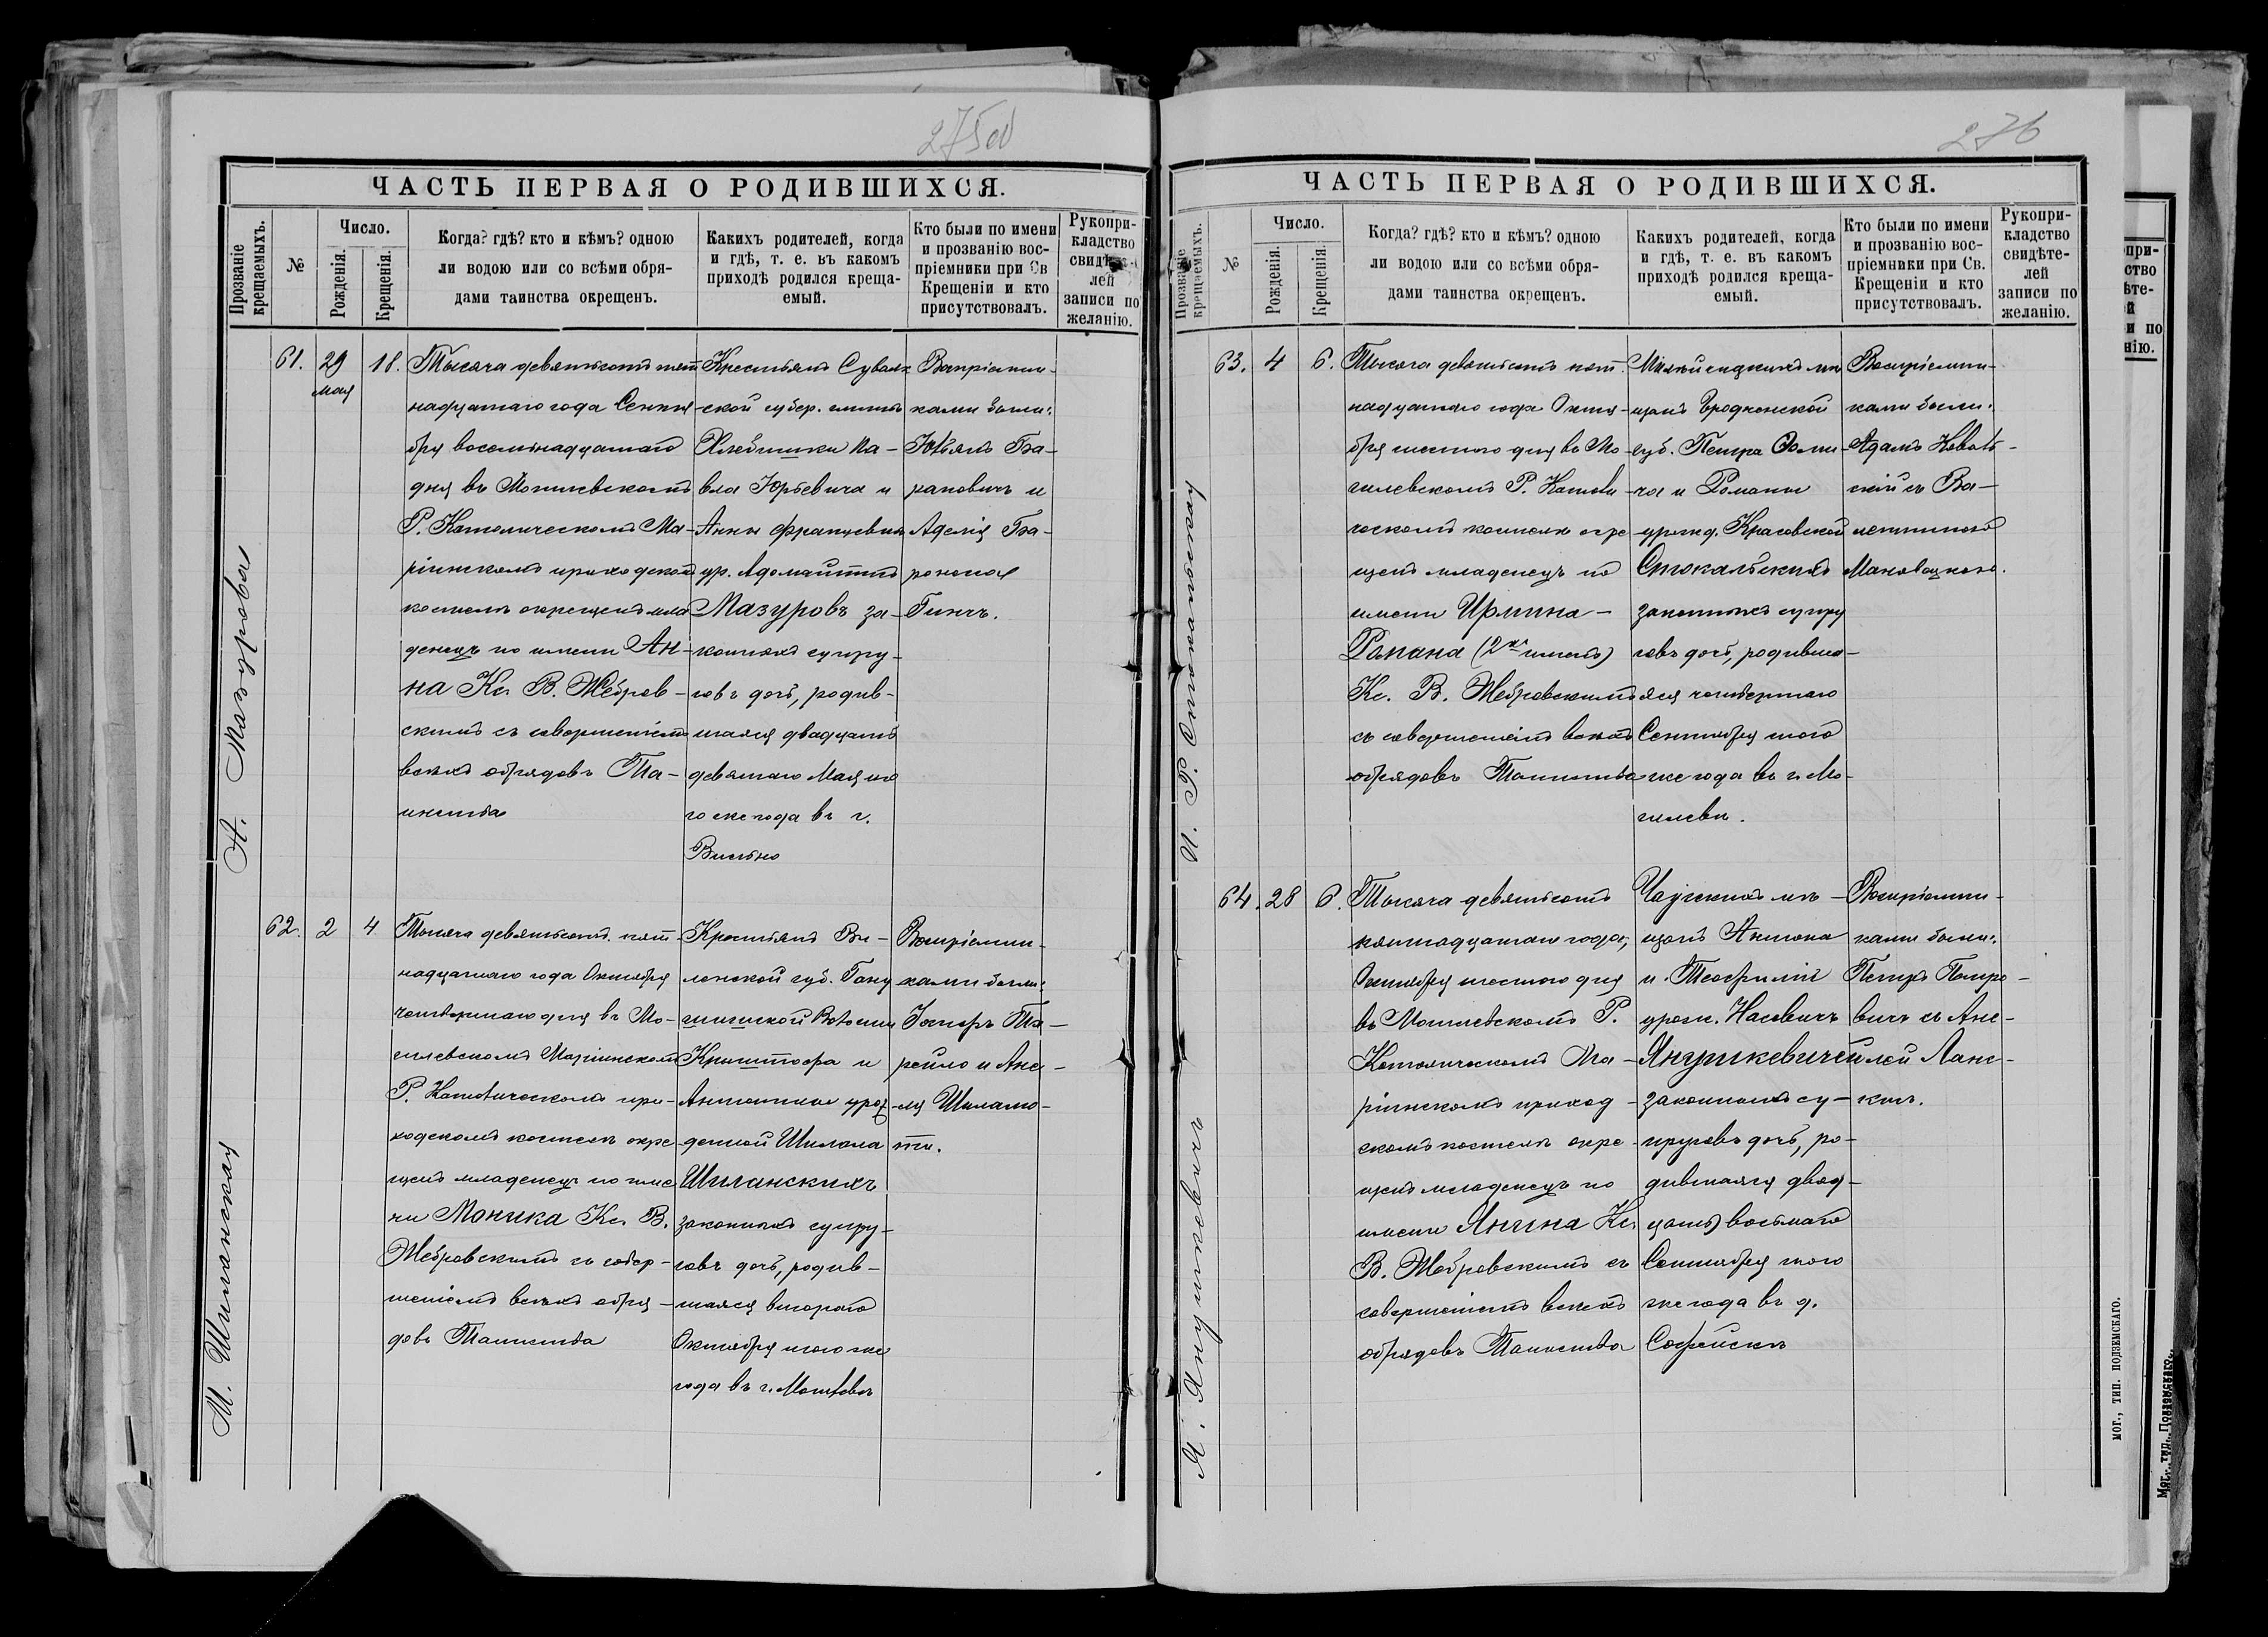 275об
ЧАСТЬ ПЕРВАЯ О РОДИВШИХСЯ.
Прозваніе крещаемыхъ.
№
Число.
Рожденія.
Крещенія.
Когда? гдѣ? кто и кѣмъ? одною
ли водою или со всѣми обря-
дами таинства окрещенъ.
Какихъ родителей, когда
и гдѣ, т. е. въ какомъ
приходѣ родился креща-
емый.
Кто были по имени
и прозванію вос-
пріемники при Св
Крещеніи и кто
присутствовалъ.
Рукопри-
кладство
свидѣте-
лей
записи по
желанію.
А. Мазурова
61.
29
мая
18.
Тысяча девятьсотъ пят
надцатаго года Сентя
бря восемнадцатаго
дня въ Могилевскомъ
Р. Католическомъ Ма-
ріинскомъ приходском
костелѣ окрещенъ мла
денецъ по имени Ан-
на Кс. В. Жебров-
скимъ съ совершеніемъ
всѣхъ обрядовъ Та-
инства
Крестьянъ Сувалк
ской губер. гмины
Хлебишки Па-
вла Юрьевича и
Анны Францевны
ур. Адомайтисъ
Мазуровъ за-
конныхъ супру-
говъ дочь, родив-
шаяся двадцать
девятаго Мая то
го же года въ г.
Вильно
Воспріемни-
ками были:
Юльянъ Ба-
рановичъ и
Аделія Ба-
роноса
Гинчъ.
М. Шиманская
62.
2
4
Тысяча девятьсотъ пят-
надцатаго года Октября
четвертаго дня въ Мо-
гилевскомъ Маріинском
Р. Католическомъ при-
ходскомъ костелѣ окре
щенъ младенецъ по име
ни Моника Кс. В.
Жебровскимъ съ совер-
шеніемъ всѣхъ обря-
довъ Таинства
Крестьянъ Ви-
ленской губ. Гану
шишской Волости
Криштофа и
Антонины урож
денной Шилала
Шиманскихъ
законныхъ супру-
говъ дочь, родив-
шаяся второго
Октября того же
года въ г. Могилевѣ
Воспріемни-
ками были:
и Ане-
ля
ти.
276
ЧАСТЬ ПЕРВАЯ О РОДИВШИХСЯ.
Прозваніе крещаемыхъ.
№
Число.
Рожденія.
Крещенія.
Когда? гдѣ? кто и кѣмъ? одною
ли водою или со всѣми обря-
дами таинства окрещенъ.
Какихъ родителей, когда
и гдѣ, т. е. въ какомъ
приходѣ родился креща-
емый.
Кто были по имени
и прозванію вос-
пріемники при Св.
Крещеніи и кто
присутствовалъ.
Рукопри-
кладство
свидѣте-
лей
записи по
желанію.
И. Р. Стокальская
63.
4
6.
Тысяча девятьсотъ пят
надцатаго года Октя-
бря шестого дня въ Мо-
гилевскомъ Р. Католи-
ческомъ костелѣ окре
щенъ младенецъ по
имени Ирмина-
Романа (2хъ именъ)
Кс. В. Жебровскимъ
съ совершеніемъ всѣхъ
обрядовъ Таинства
мѣ
щанъ Гродненской
губ. Петра
ча и Романы
урожд. Красовской
Стокальскихъ
законныхъ супру
говъ дочь, родивша-
яся четвертаго
Сентября того
же года въ г. Мо-
гилевѣ.
Воспріемни-
ками были:
Адамъ Коваль-
скій съ Ва-
лентиною
Маковецкою.
Я. Янушкевичъ
64.
28
6.
Тысяча девятьсотъ
пятнадцатаго года,
Октября шестого дня
въ Могилевскомъ Р.
Католическомъ Ма-
ріинскомъ приход-
скомъ костелѣ окре-
щенъ младенецъ по
имени Янина Кс.
В. Жебровскимъ съ
совершеніемъ всѣхъ
обрядовъ Таинства
Чаусскихъ мѣ-
щанъ Антона
и Теофиліи
урож. Насевичъ
Янушкевичей
законныхъ су-
пруговъ дочь, ро-
дившаяся двад-
цать восьмаго
Сентября того
же года въ д.
Софейскѣ
Воспріемни-
ками были:
Петръ Петро-
вичъ съ Ане-
лей Ланс-
кихъ.
МОГ., ТИП. ПОДЗЕМСКАГО.